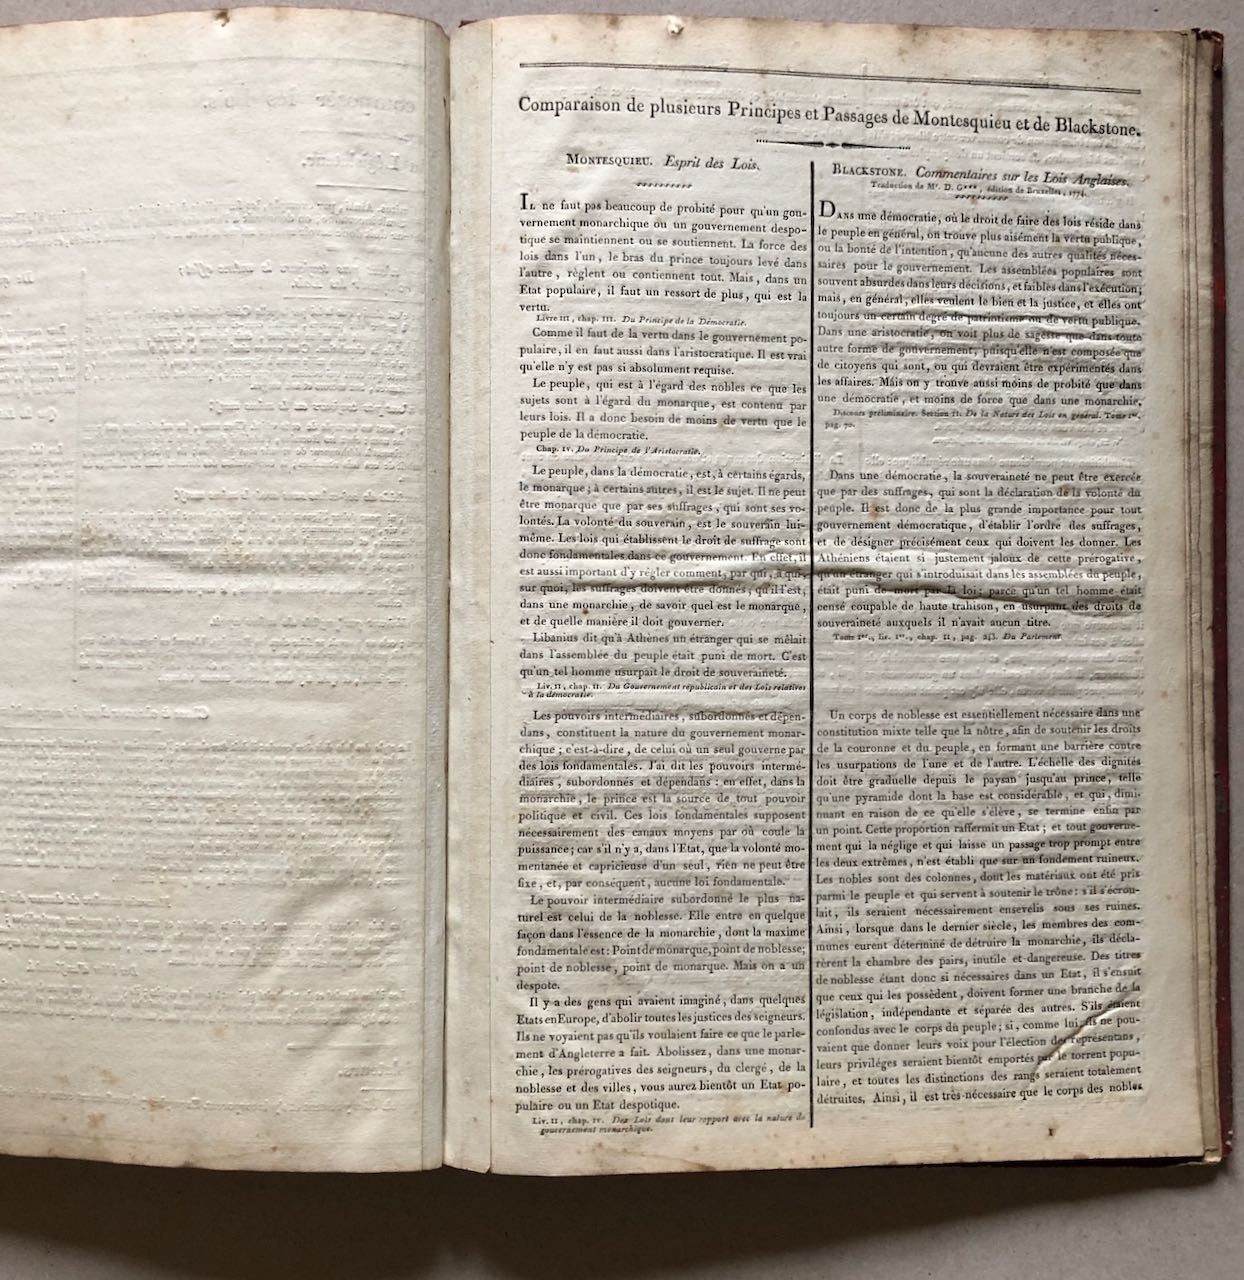 Comparaison de plusieurs Principes et Passages de Montesquieu et de Blackstone.
MONTESQUIEU. Esprit des Lois.
IL ne faut pas beaucoup de probité pour qu'un gou-
vernement monarchique ou un gouvernement despo-
tique se maintiennent ou se soutiennent. La force des
lois dans l'un, le bras du prince toujours levé dans
l'autre, règlent ou contiennent tout. Mais, dans un
Etat populaire, il faut un ressort de plus, qui est la
vertu.
Livre III, chap. III. Du Principe de la Démocratie.
Comme il faut de la vertu dans le gouvernement po-
pulaire, il en faut aussi dans l'aristocratique. Il est vrai
qu'elle n'y est pas si absolument requise.
Le peuple, qui est à l'égard des nobles ce que les
sujets sont à l'égard du monarque, est contenu par
leurs lois. Il a donc besoin de moins de vertu que le
peuple de la démocratie.
Chap. IV. Du Principe de l'Aristocratie.
Le peuple, dans la démocratie, est, à certains égards,
le monarque; à certains autres, il est le sujet. Il ne peut
être monarque que par ses suffrages, qui sont ses vo-
lontés. La volonté du souverain, est le souverain lui-
même. Les lois qui établissent le droit de suffrage sont
donc fondamentales dans ce gouvernement. En effet, il
est aussi important d'y régler comment, par qui, à qui,
sur quoi, les suffrages doivent être donnés, qu'il l'est,
dans une monarchie, de savoir quel est le monarque,
et de quelle manière il doit gouverner.
Libanius dit qu'à Athènes un étranger qui se mêlait
dans l'assemblée du peuple était puni de mort. C'est
qu'un tel homme usurpait le droit de souveraineté.
Liv. II, chap. II. Du Gouvernement républicain et des Lois relatives
à la démocratie.
Les pouvoirs intermédiaires, subordonnés et dépen-
dans, constituent la nature du gouvernement monar-
chique; c'est-à-dire, de celui où un seul gouverne par
des lois fondamentales. J'ai dit les pouvoirs intermé-
diaires, subordonnés et dépendans: en effet, dans la
monarchie, le prince est la source de tout pouvoir
politique et civil. Ces lois fondamentales supposent
nécessairement des canaux moyens par où coule la
puissance; car s'il n'y a, dans l'Etat, que la volonté mo-
mentanée et capricieuse d'un seul, rien ne peut être
fixe, et, par conséquent, aucune loi fondamentale.
Le pouvoir intermédiaire subordonné le plus na-
turel est celui de la noblesse. Elle entre en quelque
façon dans l'essence de la monarchie, dont la maxime
fondamentale est: Point de monarque, point de noblesse;
point de noblesse, point de monarque. Mais on a un
despote.
Il y a des gens qui avaient imaginé, dans quelques
Etats en Europe, d'abolir toutes les justices des seigneurs.
Ils ne voyaient pas qu'ils voulaient faire ce que le parle-
ment d'Angleterre a fait. Abolissez, dans une monar-
chie, les prérogatives des seigneurs, du clergé, de la
noblesse et des villes, vous aurez bientôt un Etat po-
pulaire ou un Etat despotique.
Liv. II, chap. IV. Des Lois dans leur rapport avec la nature du
gouvernement monarchique.
BLACKSTONE. Commentaires sur les Lois Anglaises.
Traduction de Mr. D. G***, édition de Bruxelles, 1774.
DANS une démocratie, où le droit de faire des lois réside dans
le peuple en général, on trouve plus aisément la vertu publique,
ou la bonté de l'intention, qu'aucune des autres qualités néces-
saires pour le gouvernement. Les assemblées populaires sont
souvent absurdes dans leurs décisions, et faibles dans l'exécution;
mais, en général, elles veulent le bien et la justice, et elles ont
toujours un certain degré de patriotisme ou de vertu publique.
Dans une aristocratie, on voit plus de sagesse que dans toute
autre forme de gouvernement, puisqu'elle n'est composée que
de citoyens qui sont, ou qui devraient être expérimentés dans
les affaires. Mais on y trouve aussi moins de probité que dans
une démocratie, et moins de force que dans une monarchie.
Discours préliminaire. Section II. De la Nature des Lois en général. Tome Ier.
pag. 70.
Dans une démocratie, la souveraineté ne peut être exercée
que par des suffrages, qui sont la déclaration de la volonté du
peuple. Il est donc de la plus grande importance pour tout
gouvernement démocratique, d'établir l'ordre des suffrages,
et de désigner précisément ceux qui doivent les donner. Les
Athéniens étaient si justement jaloux de cette prérogative,
qu'un étranger qui s'introduisait dans les assemblées du peuple,
était puni de mort par la loi; parce qu'un tel homme était
censé coupable de haute trahison, en usurpant des droits de
souveraineté auxquels il n'avait aucun titre.
Tome Ier., liv. Ier., chap. II, pag. 243. Du Parlement
Un corps de noblesse est essentiellement nécessaire dans une
constitution mixte telle que la nôtre, afin de soutenir les droits
de la couronne et du peuple, en formant une barrière contre
les usurpations de l'une et de l'autre. L'échelle des dignités
doit être graduelle depuis le paysan jusqu'au prince, telle
qu'une pyramide dont la base est considérable, et qui, dimi-
nuant en raison de ce qu'elle s'élève, se termine enfin par
un point. Cette proportion raffermit un Etat; et tout gouverne-
ment qui la néglige et qui laisse un passage trop prompt entre
les deux extrêmes, n'est établi que sur un fondement ruineux.
Les nobles sont des colonnes, dont les matériaux ont été pris
parmi le peuple et qui servent à soutenir le trône: s'il s'écrou-
lait, ils seraient nécessairement ensevelis sous ses ruines.
Ainsi, lorsque dans le dernier siècle, les membres des com-
munes eurent déterminé de détruire la monarchie, ils décla-
rèrent la chambre des pairs, inutile et dangereuse. Des titres
de noblesse étant donc si nécessaires dans un Etat, il s'ensuit
que ceux qui les possèdent, doivent former une branche de la
législation, indépendante et séparée des autres. S'ils étaient
confondus avec le corps du peuple; si, comme lui, ils ne pou-
vaient que donner leurs voix pour l'élection des représentans,
leurs priviléges seraient bientôt emportés par le torrent popu-
laire, et toutes les distinctions des rangs seraient totalement
détruites. Ainsi, il est très-nécessaire que le corps des nobles
1